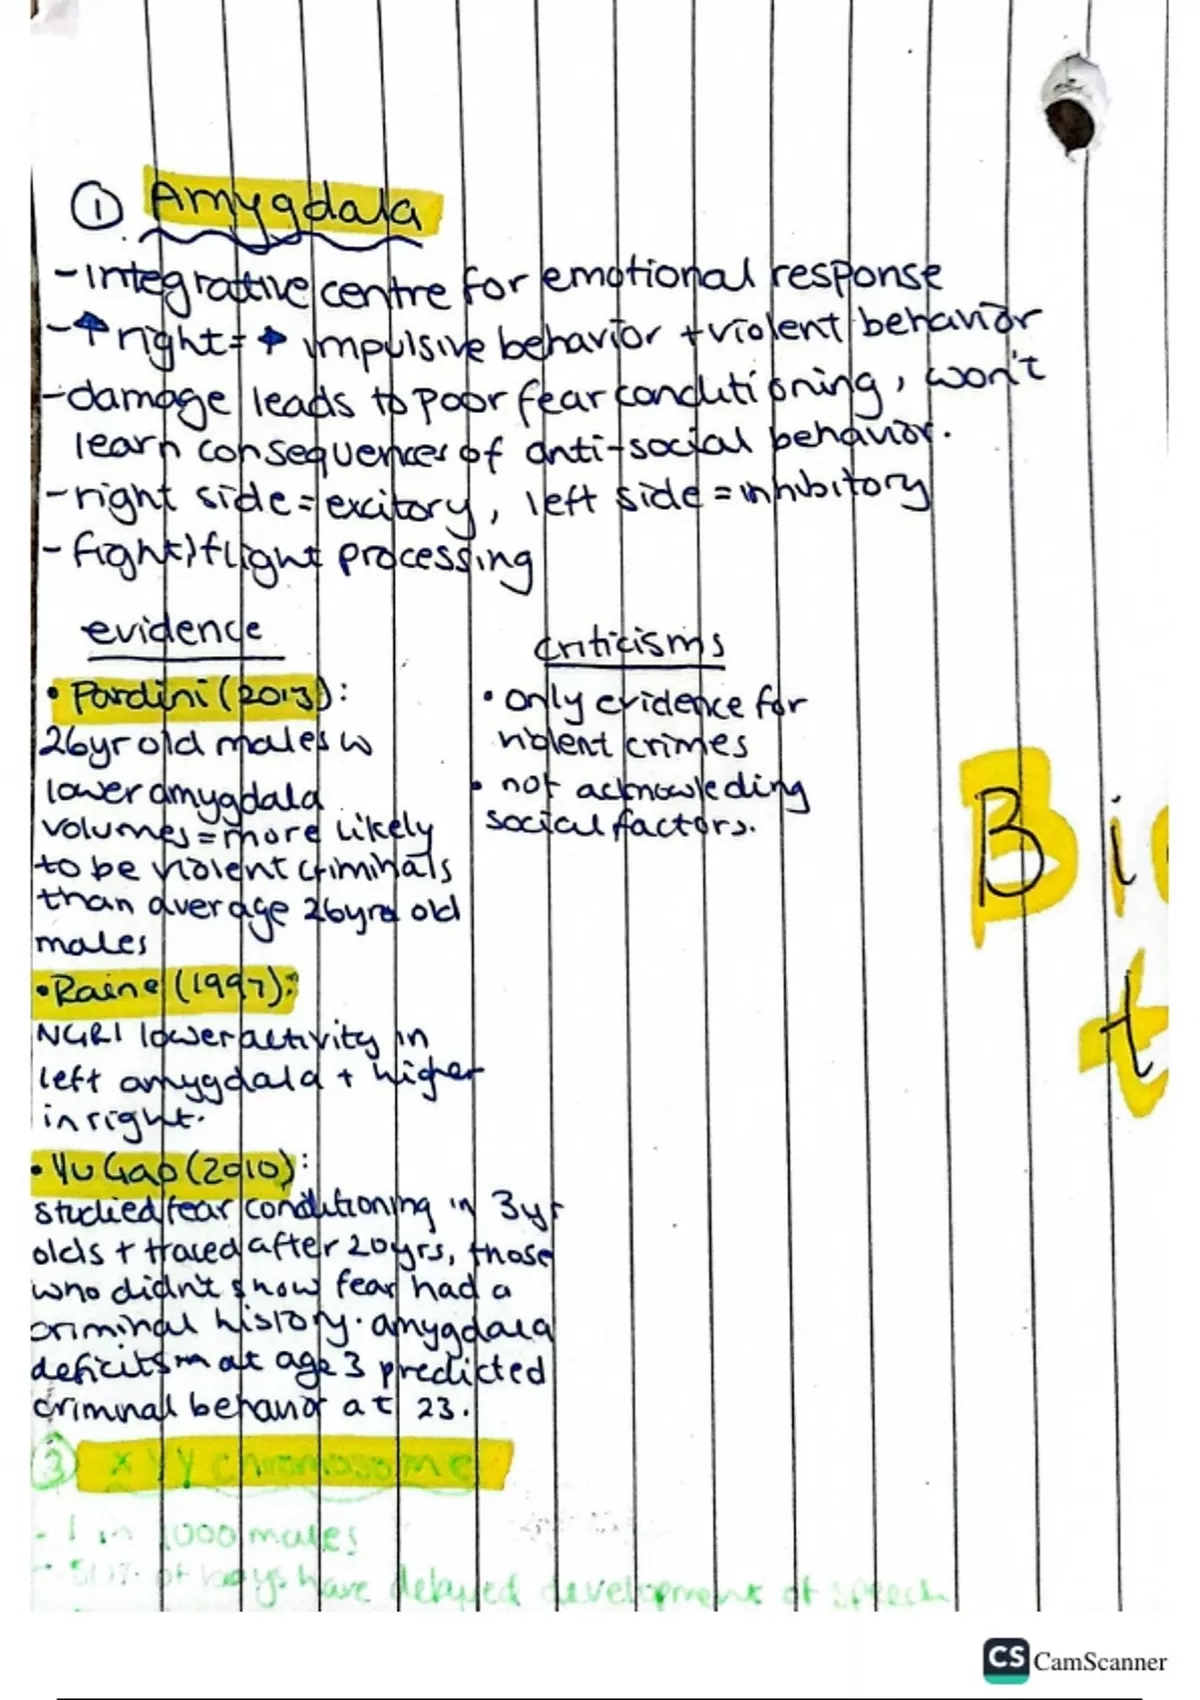 ① Amygdala
- integrative centre for emotional response
- ↑ right = ↑ impulsive behavior + violent behavior
- damage leads to poor fear conditioning, won't
learn consequences of anti-social behavior.
- right side = excitory, left side = inhibitory
- fight/flight processing
evidence
• Pardini (2013):
26yr old males w
lower amygdala
volumes = more likely
to be violent criminals
than average 26yro old
males
• Raine (1997):
NGRI lower activity in
left amygdala + higher
in right.
• Yu Gao (2010):
studied fear conditioning in 3yr
olds + traced after 20yrs, those
who didn't show fear had a
criminal history. amygdala
deficits at age 3 predicted
criminal behavior at 23.
criticisms
• only evidence for
violent crimes
• not acknowleding
social factors.
Bi
t
③ XYY chromosome
- 1 in 1000 males
- 50% of boys have delayed development of speech
CS CamScanner